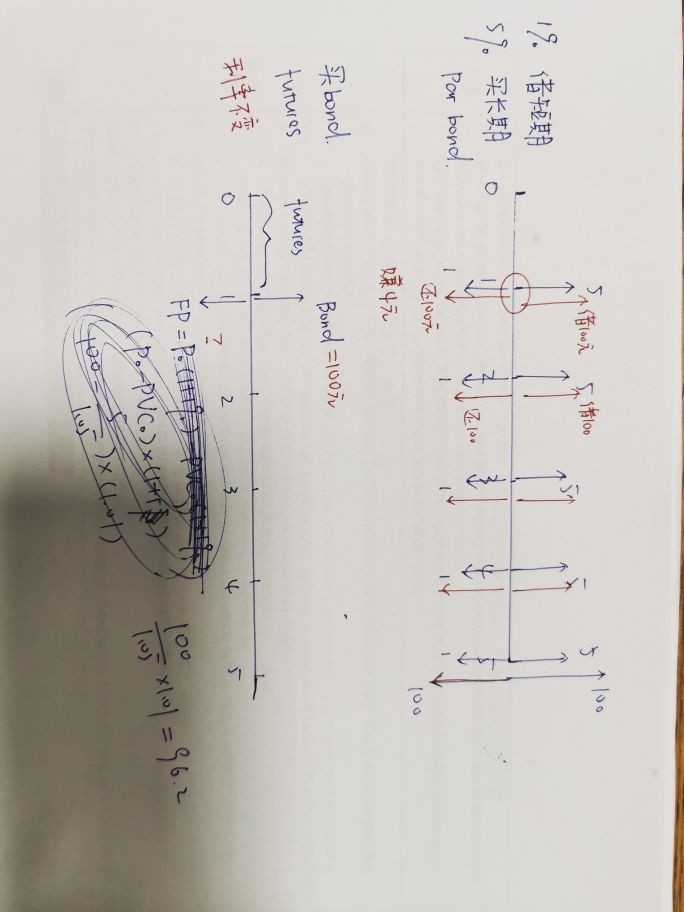 1% 借短期
5% 买长期
Par bond.
0
5 借100元
5 借100
5
5
5
100
1 2 3 4 5
1 还100元
1 还100
1
1
1
100
赚4元
买bond
futures
利率不变
futures
Bond = 100元
0 1 2 3 4 5
?
FP =
(P0 - PVC0) × (1+rf)
(100 - 5/105) × (1.01)
100/105 × 1.01 = 96.2